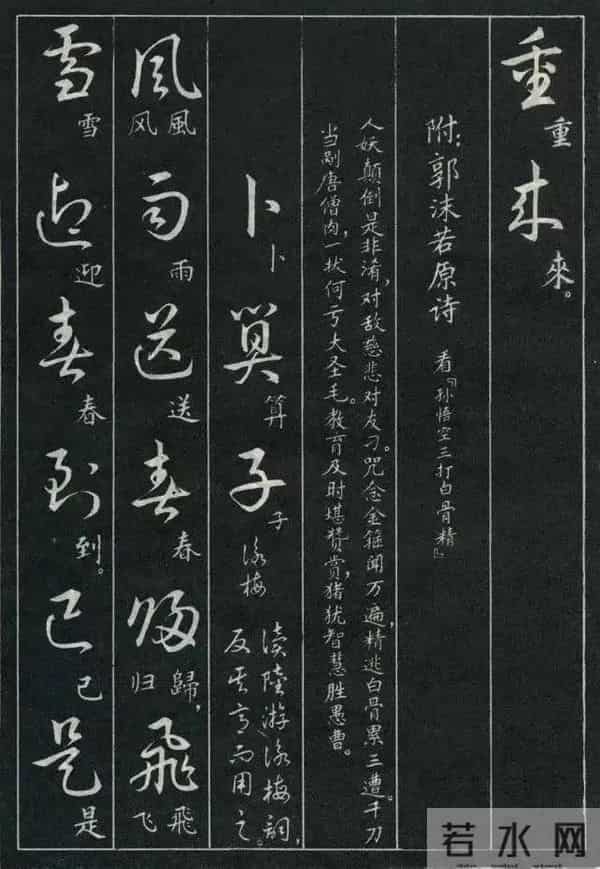 重重來來。
附：郭沫若原诗 看『孙悟空三打白骨精』
人妖颠倒是非淆，对敌慈悲对友刁。咒念金箍闻万遍，精逃白骨累三遭。千刀
当剐唐僧肉，一拔何亏大圣毛。教育及时堪赞赏，猪犹智慧胜愚曹。
卜卜算算子子 咏梅
读陆游咏梅词，
反其意而用之。
風風风雨雨送送春春歸歸，归飛飛飞
雪雪迎迎春春到到。已已是是
若水网